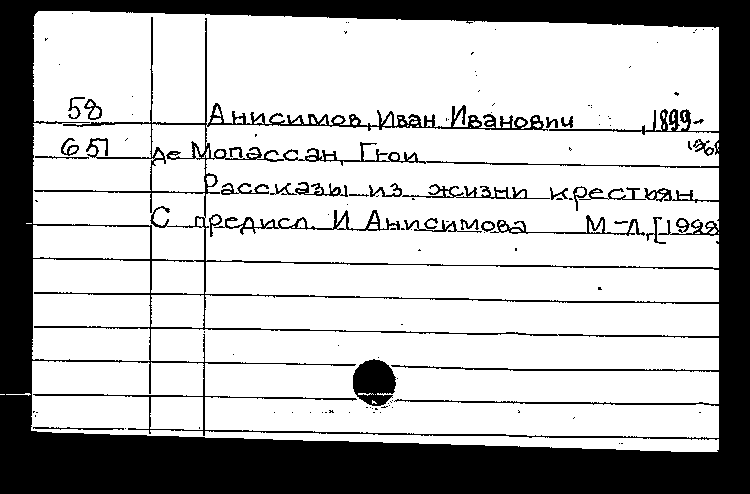 58 Анисимов, Иван Иванович , 1899-
651 де Мопассан, Гюи 1968
Рассказы из жизни крестьян.
С предисл. И Анисимова М-Л, [1928]